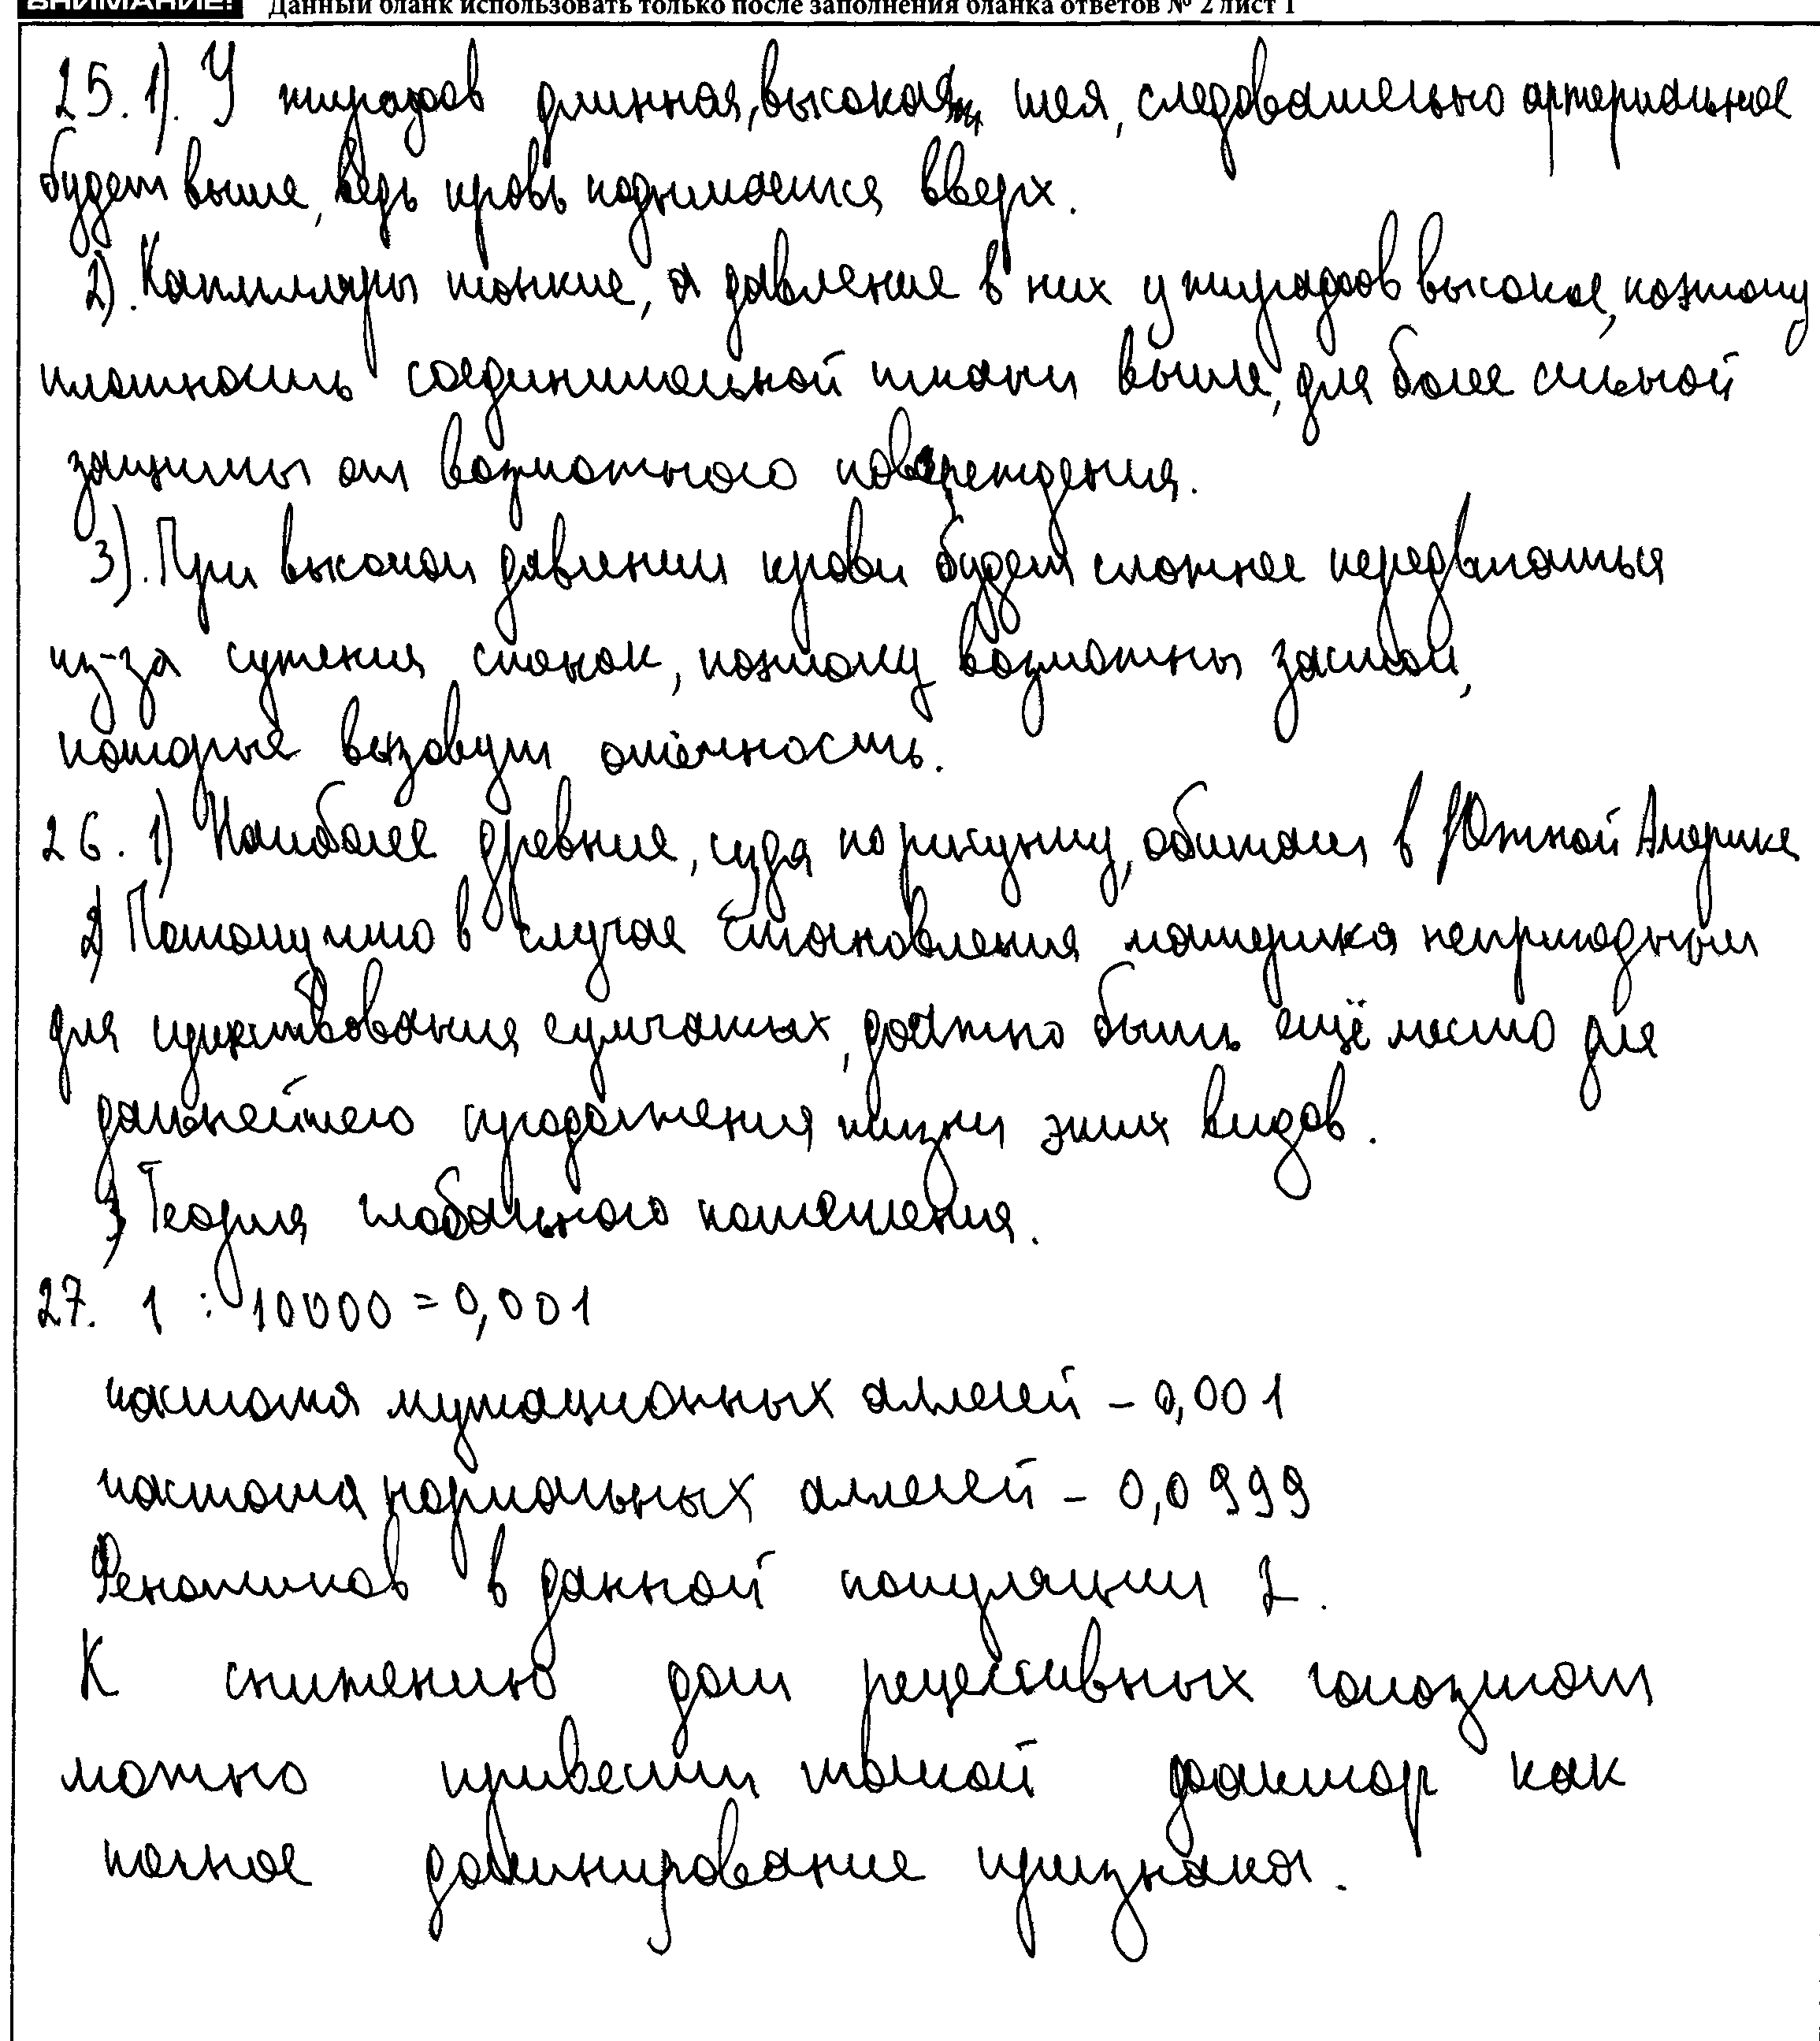 ВНИМАНИЕ! Данный бланк использовать только после заполнения бланка ответов № 2 лист 1
25. 1). У жирафов длинная, высокая шея, следовательно артериальное
будет выше, ведь кровь поднимается вверх.
2). Капилляры тонкие, а давление в них у жирафов высокое, поэтому
плотность соединительной ткани выше, для более сильной
защиты от возможного повреждения.
3). При высоком давлении крови будет сложнее передвигаться
из-за сужения стенок, поэтому возможны застои,
которые вызовут отёчность.
26. 1) Наиболее древние, судя по рисунку, обитали в Южной Америке
2) Потому что в случае становления материка непригодным
для существования сумчатых, должно быть ещё место для
дальнейшего продолжения жизни этих видов.
3) Теория глобального потепления.
27. 1 : 10000 = 0,001
частота мутационных аллелей – 0,001
частота нормальных аллелей – 0,0999
Фенотипов в данной популяции 2.
К снижению доли рецессивных гомозигот
можно привести такой фактор как
полное доминирование признака.